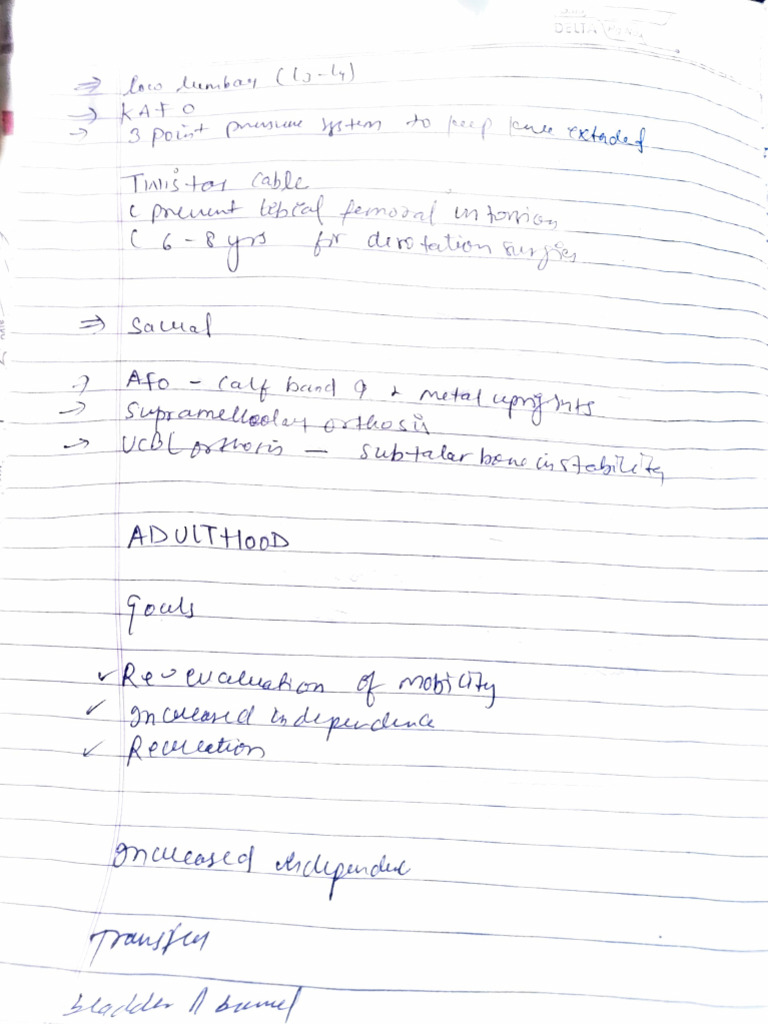 DELTA
⇒ low lumbar (L3-L4)
→ KAFO
→ 3 point pressure system to keep knee extended
Twister cable
( prevent tibial femoral intorsion
( 6-8 yrs for derotation surgies
⇒ Sacral
→ AFO - calf band & 2 metal uprights
→ Supramelleolar orthosis
→ UCBL orthosis - subtalar bone instability
ADULTHOOD
Goals
✓ Re-evaluation of mobility
✓ Increased independence
✓ Recreation
Increased independence
Transfer
bladder bowel